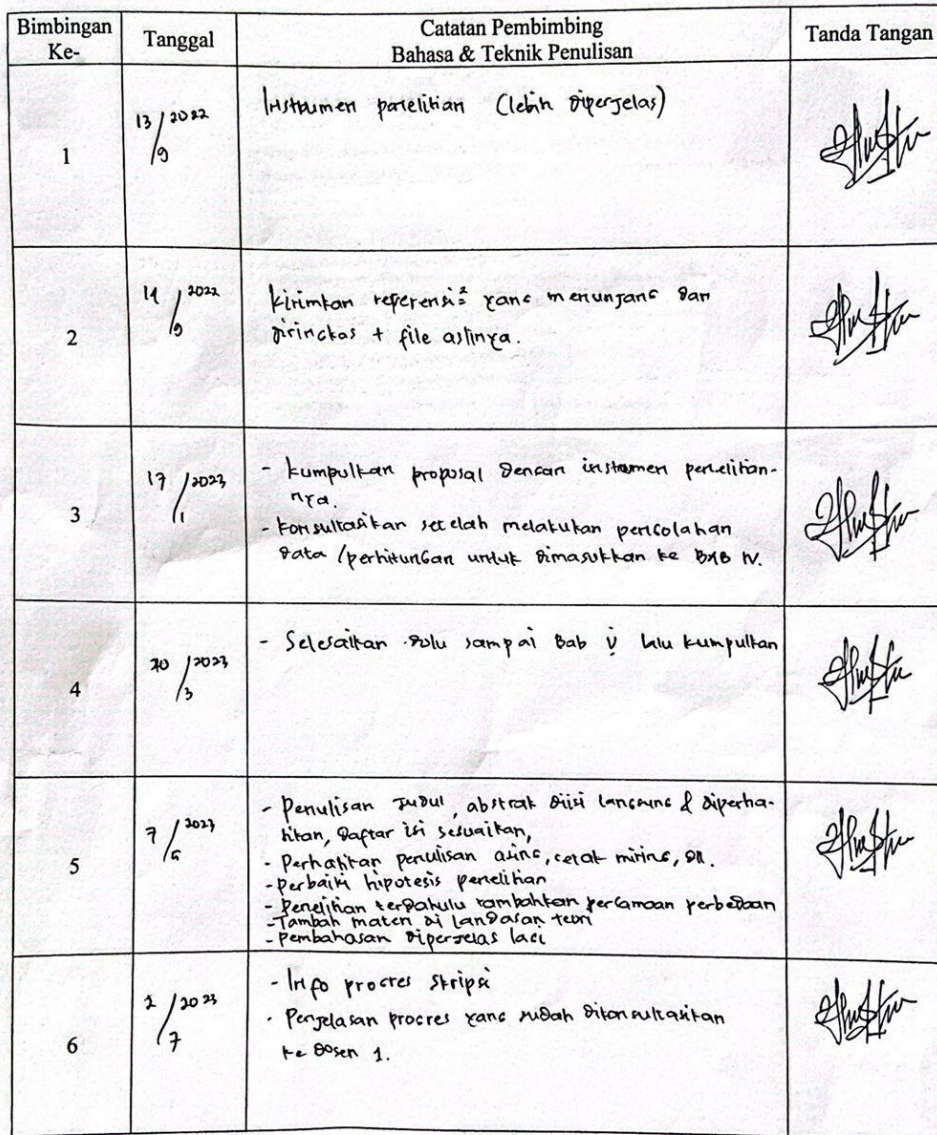 Bimbingan Ke- Tanggal Catatan Pembimbing Bahasa & Teknik Penulisan Tanda Tangan
1
13/9 2022
Instrumen penelitian (lebih diperjelas)
2
14/9 2022
Kirimkan referensi² yang menunjang dan
diringkas + file aslinya.
3
17/1 2023
- Kumpulkan proposal dengan instrumen penelitian-
nya.
- Konsultasikan setelah melakukan pengolahan
data /perhitungan untuk dimasukkan ke BAB IV.
4
/3 2023
- Selesaikan dulu sampai Bab V lalu kumpulkan
5
7/ 2023
- Penulisan Judul, abstrak diisi langsung & diperha-
tikan, Daftar isi sesuaikan,
- Perhatikan penulisan asing, cetak miring, dll.
- Perbaiki hipotesis penelitian
- Penelitian terdahulu tambahkan persamaan perbedaan
- Tambah materi di landasan teori
- Pembahasan diperjelas lagi
6
/7 2023
- Info progres skripsi
- Penjelasan progres yang sudah dikonsultasikan
ke dosen 1.